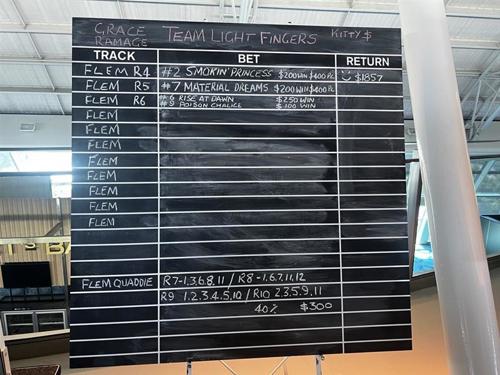 GRACE RAMAGE TEAM LIGHT FINGERS KITTY $
TRACK BET RETURN
FLEM R4 #2 SMOKIN' PRINCESS $200 WIN $400 PL $1857
FLEM R5 #7 MATERIAL DREAMS $200 WIN $400 PL
FLEM R6 #6 RISE AT DAWN $250 WIN
#9 POISON CHALICE $100 WIN
FLEM
FLEM
FLEM
FLEM
FLEM
FLEM
FLEM
FLEM
FLEM QUADDIE R7-1.3.6.8.11 / R8-1.6.7.11.12
R9 1.2.3.4.5.10 / R10 2.3.5.9.11
40% $300